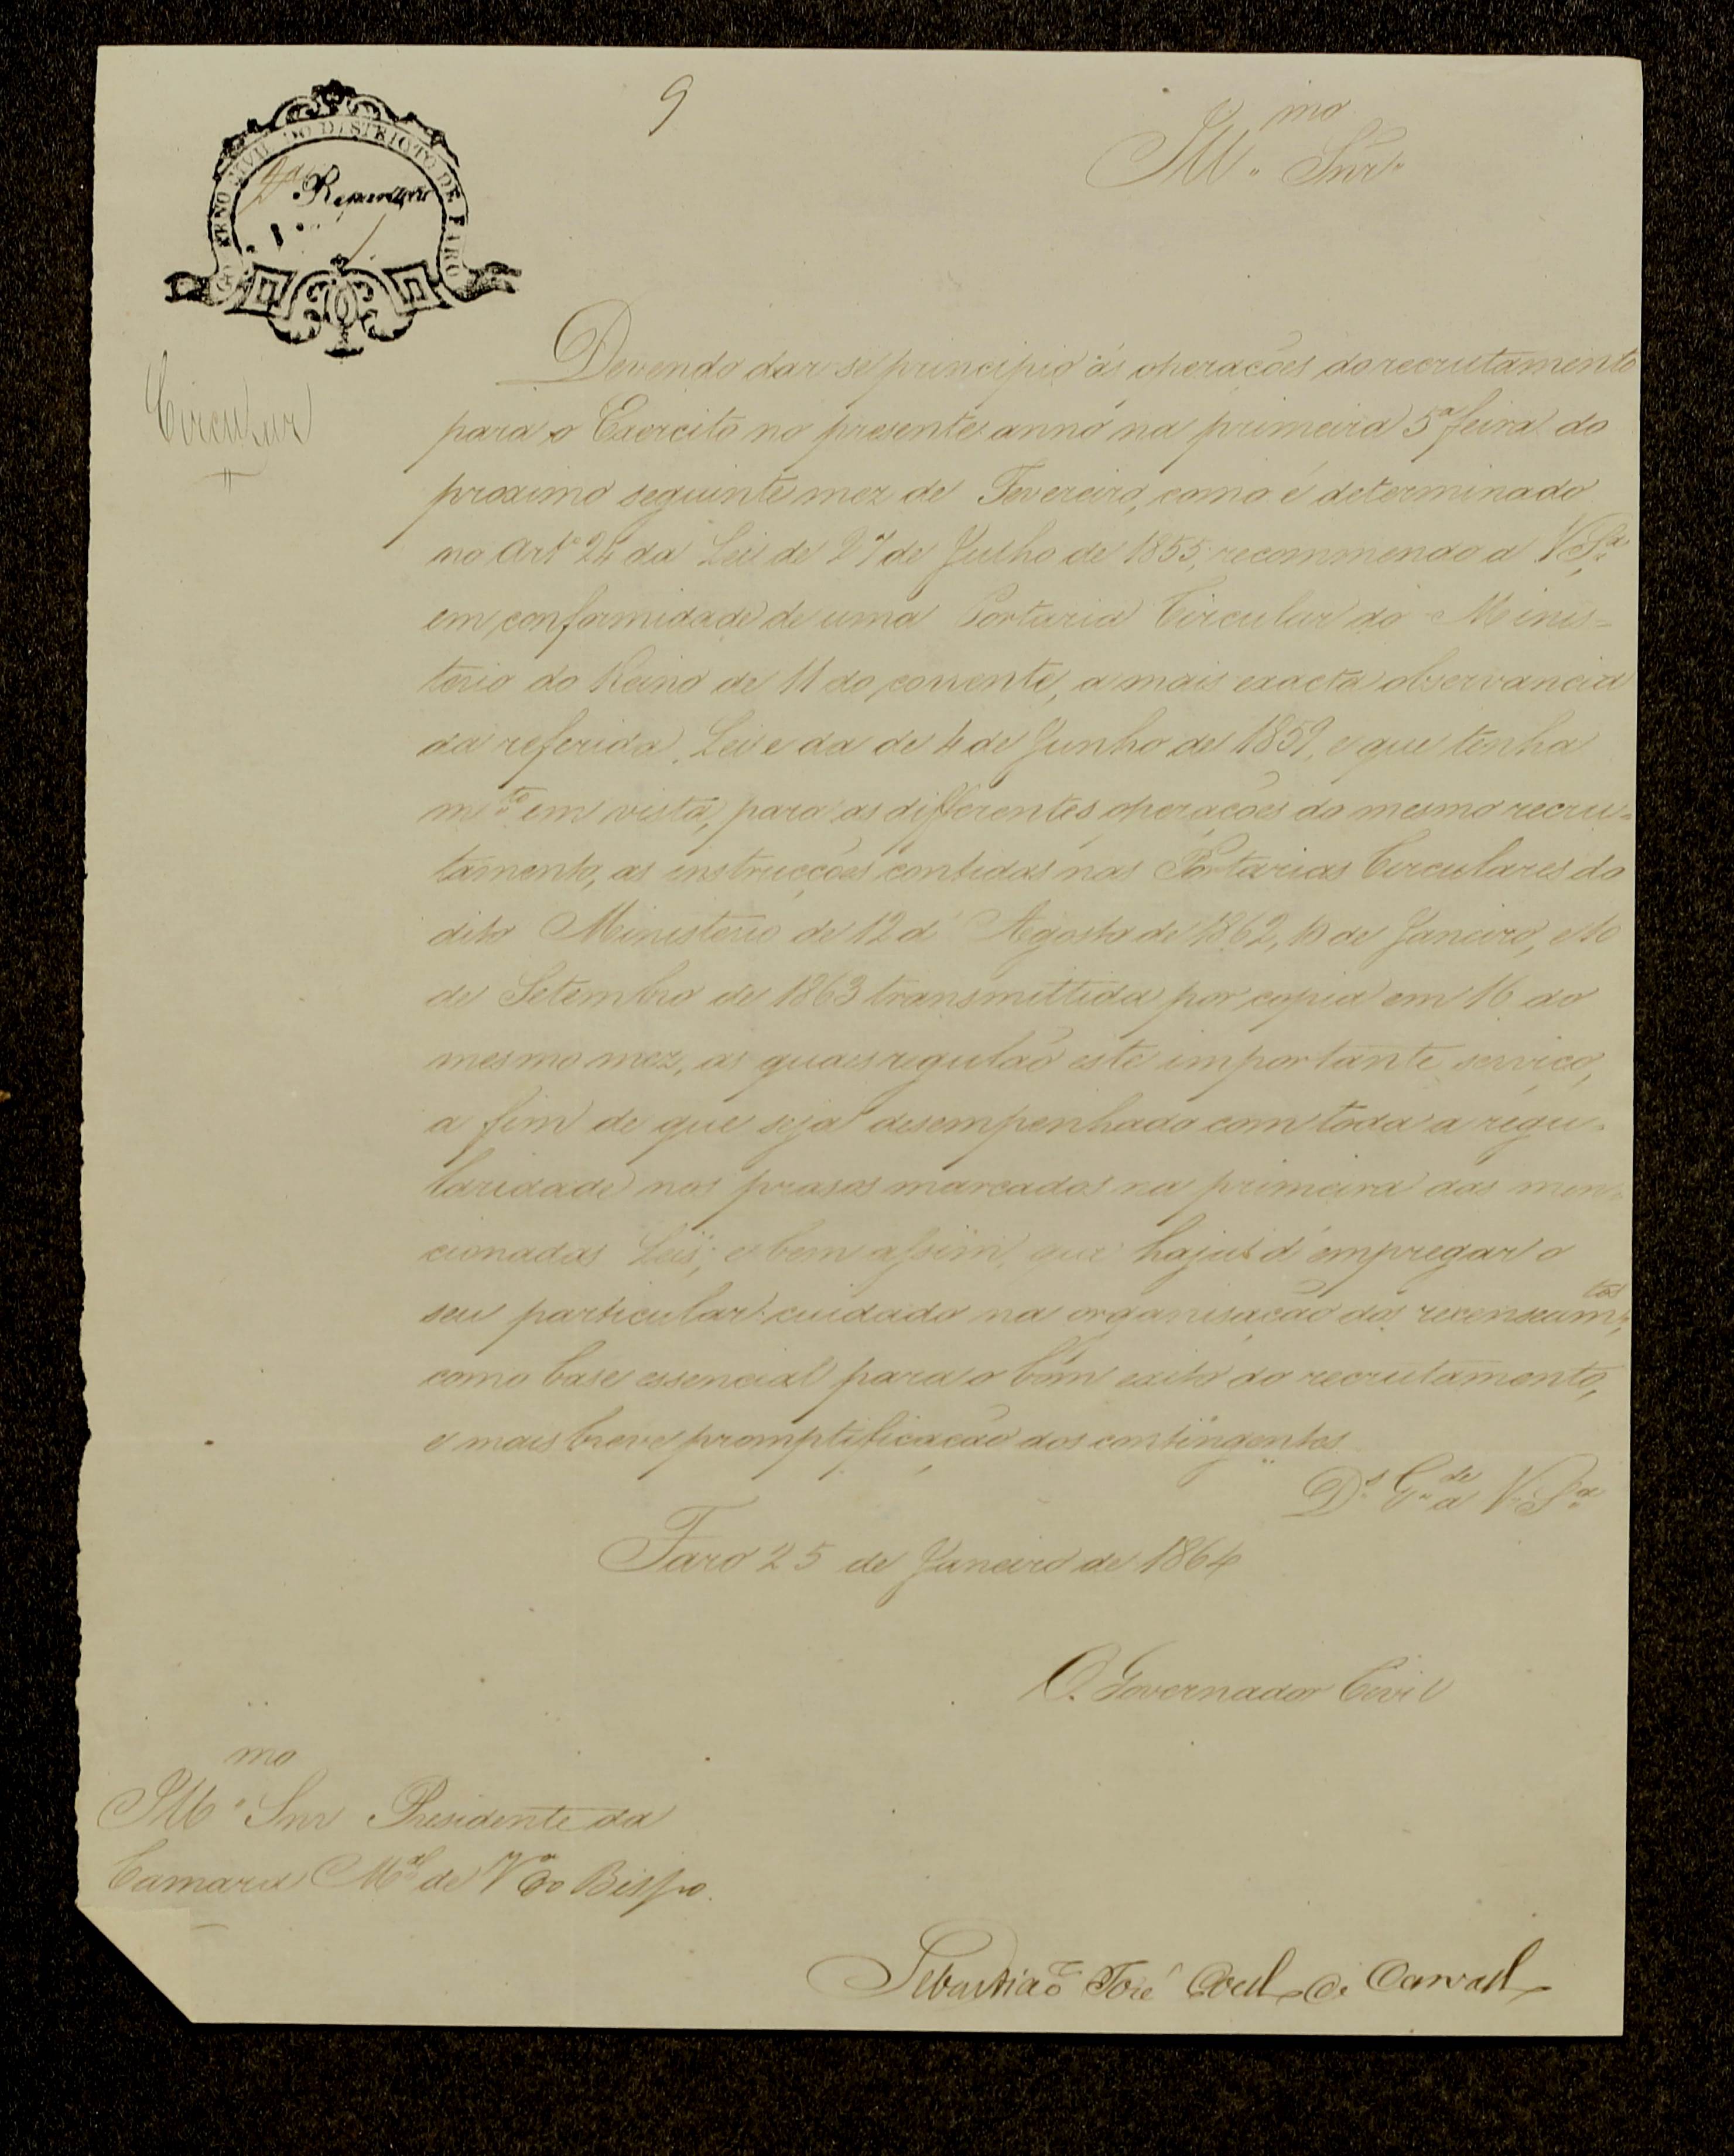 9
Ill.mo Snr.
GOVERNO CIVIL DO DISTRICTO DE FARO
2ª Repartição
Circular
Devendo dar se principio ás operações do recrutamento
para o Exercito no presente anno na primeira 5ª feira do
proximo seguinte mez de Fevereiro, como é determinado
no Artº 24 da Lei de 27 de Julho de 1855, recommendo a V. Sª,
em conformidade de uma Portaria Circular do Minis-
terio do Reino de 11 do corrente, a mais exacta observancia
da referida Lei e da de 4 de Junho de 1859, e que tenha
m.to em vista, para as differentes operações do mesmo recru-
tamento, as instrucções contidas nas Portarias Circulares do
dito Ministerio de 12 d'Agosto de 1862, 10 de Janeiro, e 10
de Setembro de 1863 transmittida por copia em 16 do
mesmo mez, as quaes regulão este importante serviço,
a fim de que seja desempenhado com toda a regu-
laridade nos prasos marcados na primeira das men-
cionadas Leis; e bem assim, que haja d'empregar o
seu particular cuidado na organisação dos recenseam.tos,
como base essencial para o bom exito do recrutamento,
e mais breve promptificação dos contingentes.
D.s G.de a V. Sª
Faro 25 de Janeiro de 1864
O Governador Civil
Ill.mo Snr Presidente da
Camara M.al de Vª do Bispo.
Sebastião José Coelho de Carvalho